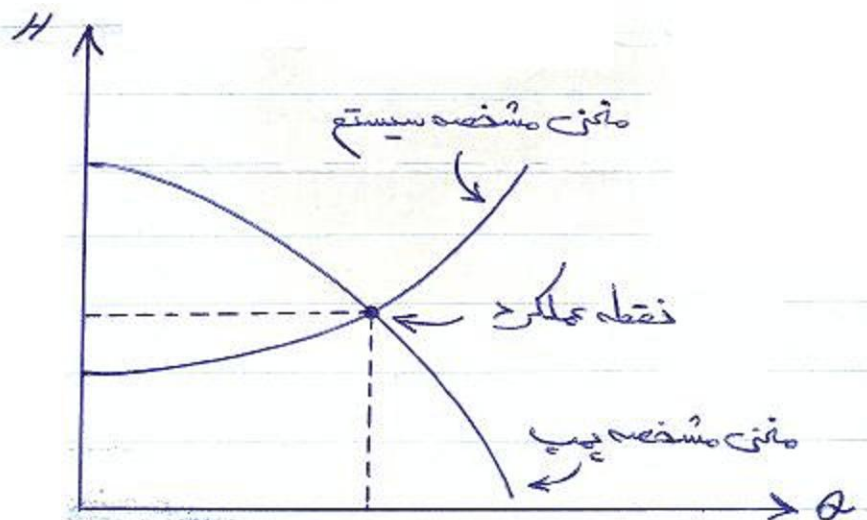 H
منحنی مشخصه سیستم
نقطه عملکرد
منحنی مشخصه پمپ
Q